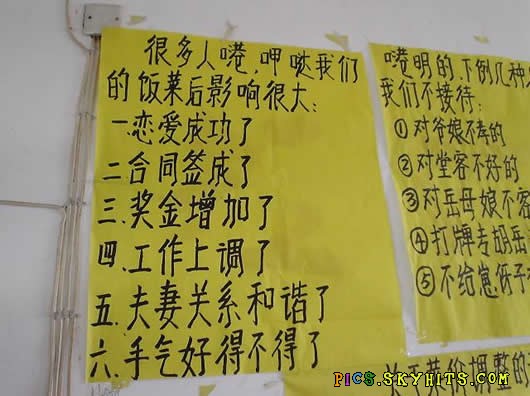 很多人喽,呷哒我们
的饭菜后影响很大:
一恋爱成功了
二合同签成了
三.奖金增加了
四.工作上调了
五.夫妻关系和谐了
六.手气好得不得了
喽明的.下例几种
我们不接待:
①对爷娘不孝的
②对堂客不好的
③对岳母娘不客
④打牌专胡岳
⑤不给崽伢子
关于菜价调整的
PICS.SKYHITS.COM